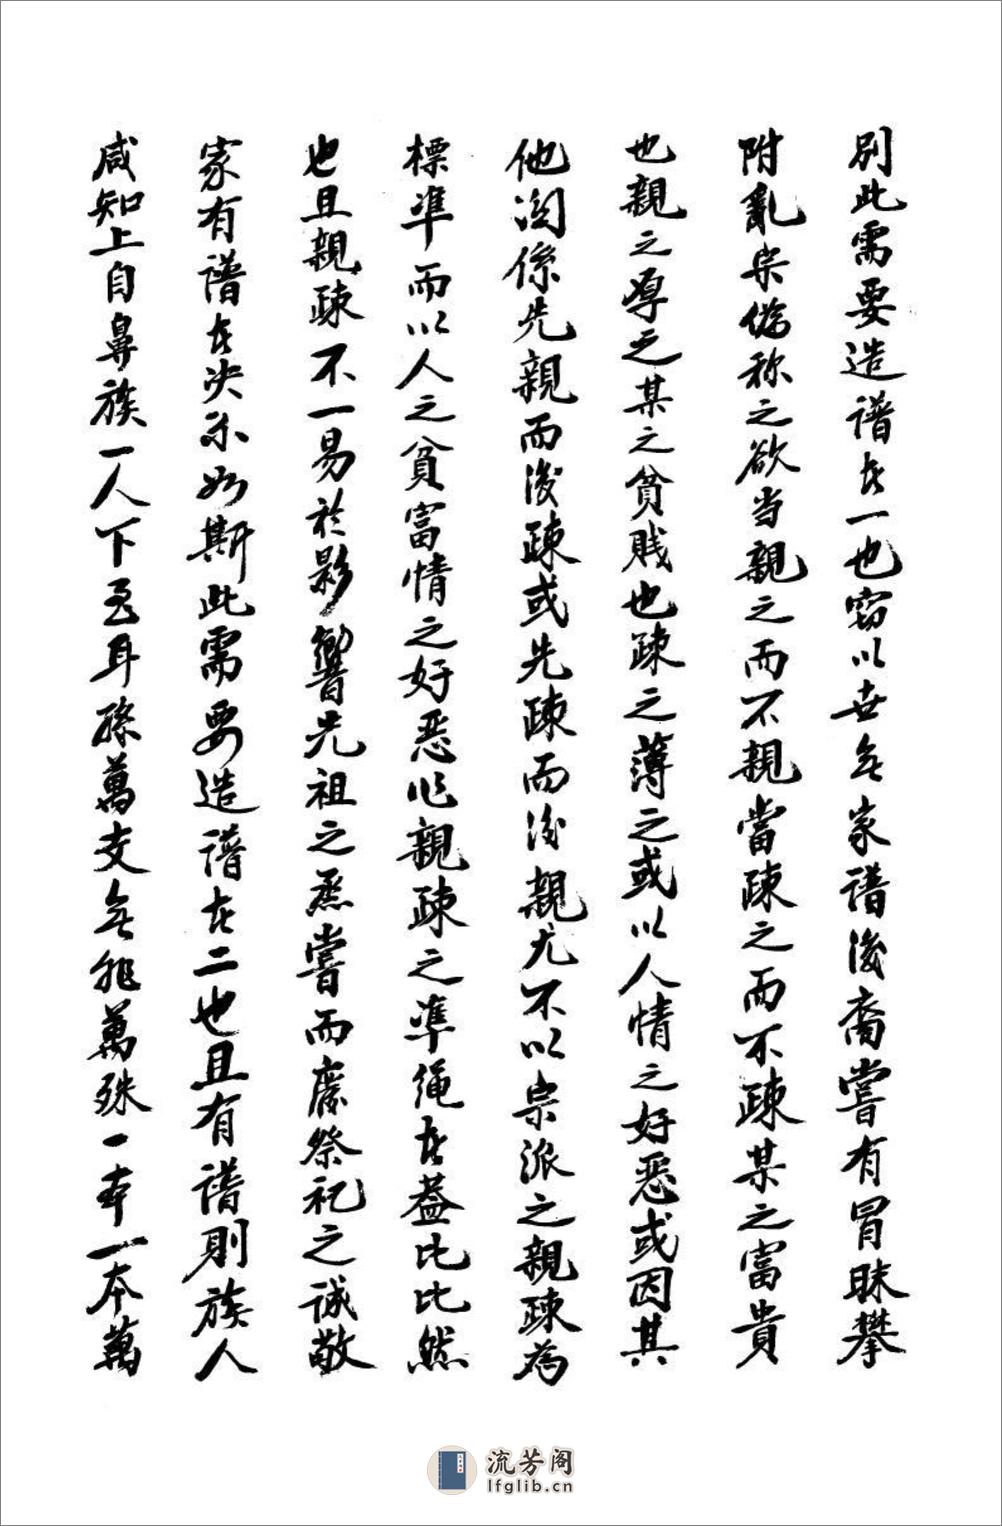 別此需要造譜者一也窃以世无家譜後裔嘗有冒昧攀
附亂宗偽称之欲当親之而不親當疎之而不疎某之富貴
也親之厚之某之貧賎也疎之薄之或以人情之好惡或因其
他関係先親而後疎或先疎而後親尤不以宗派之親疎為
標準而以人之貧富情之好惡作親疎之準绳者蓋比比然
也且親疎不一易於影響先祖之烝嘗而廢祭祀之誠敬
家有譜者决不如斯此需要造譜者二也且有譜則族人
咸知上自鼻族一人下至耳孫萬支无非萬殊一本一本萬
流芳阁
lfglib.cn